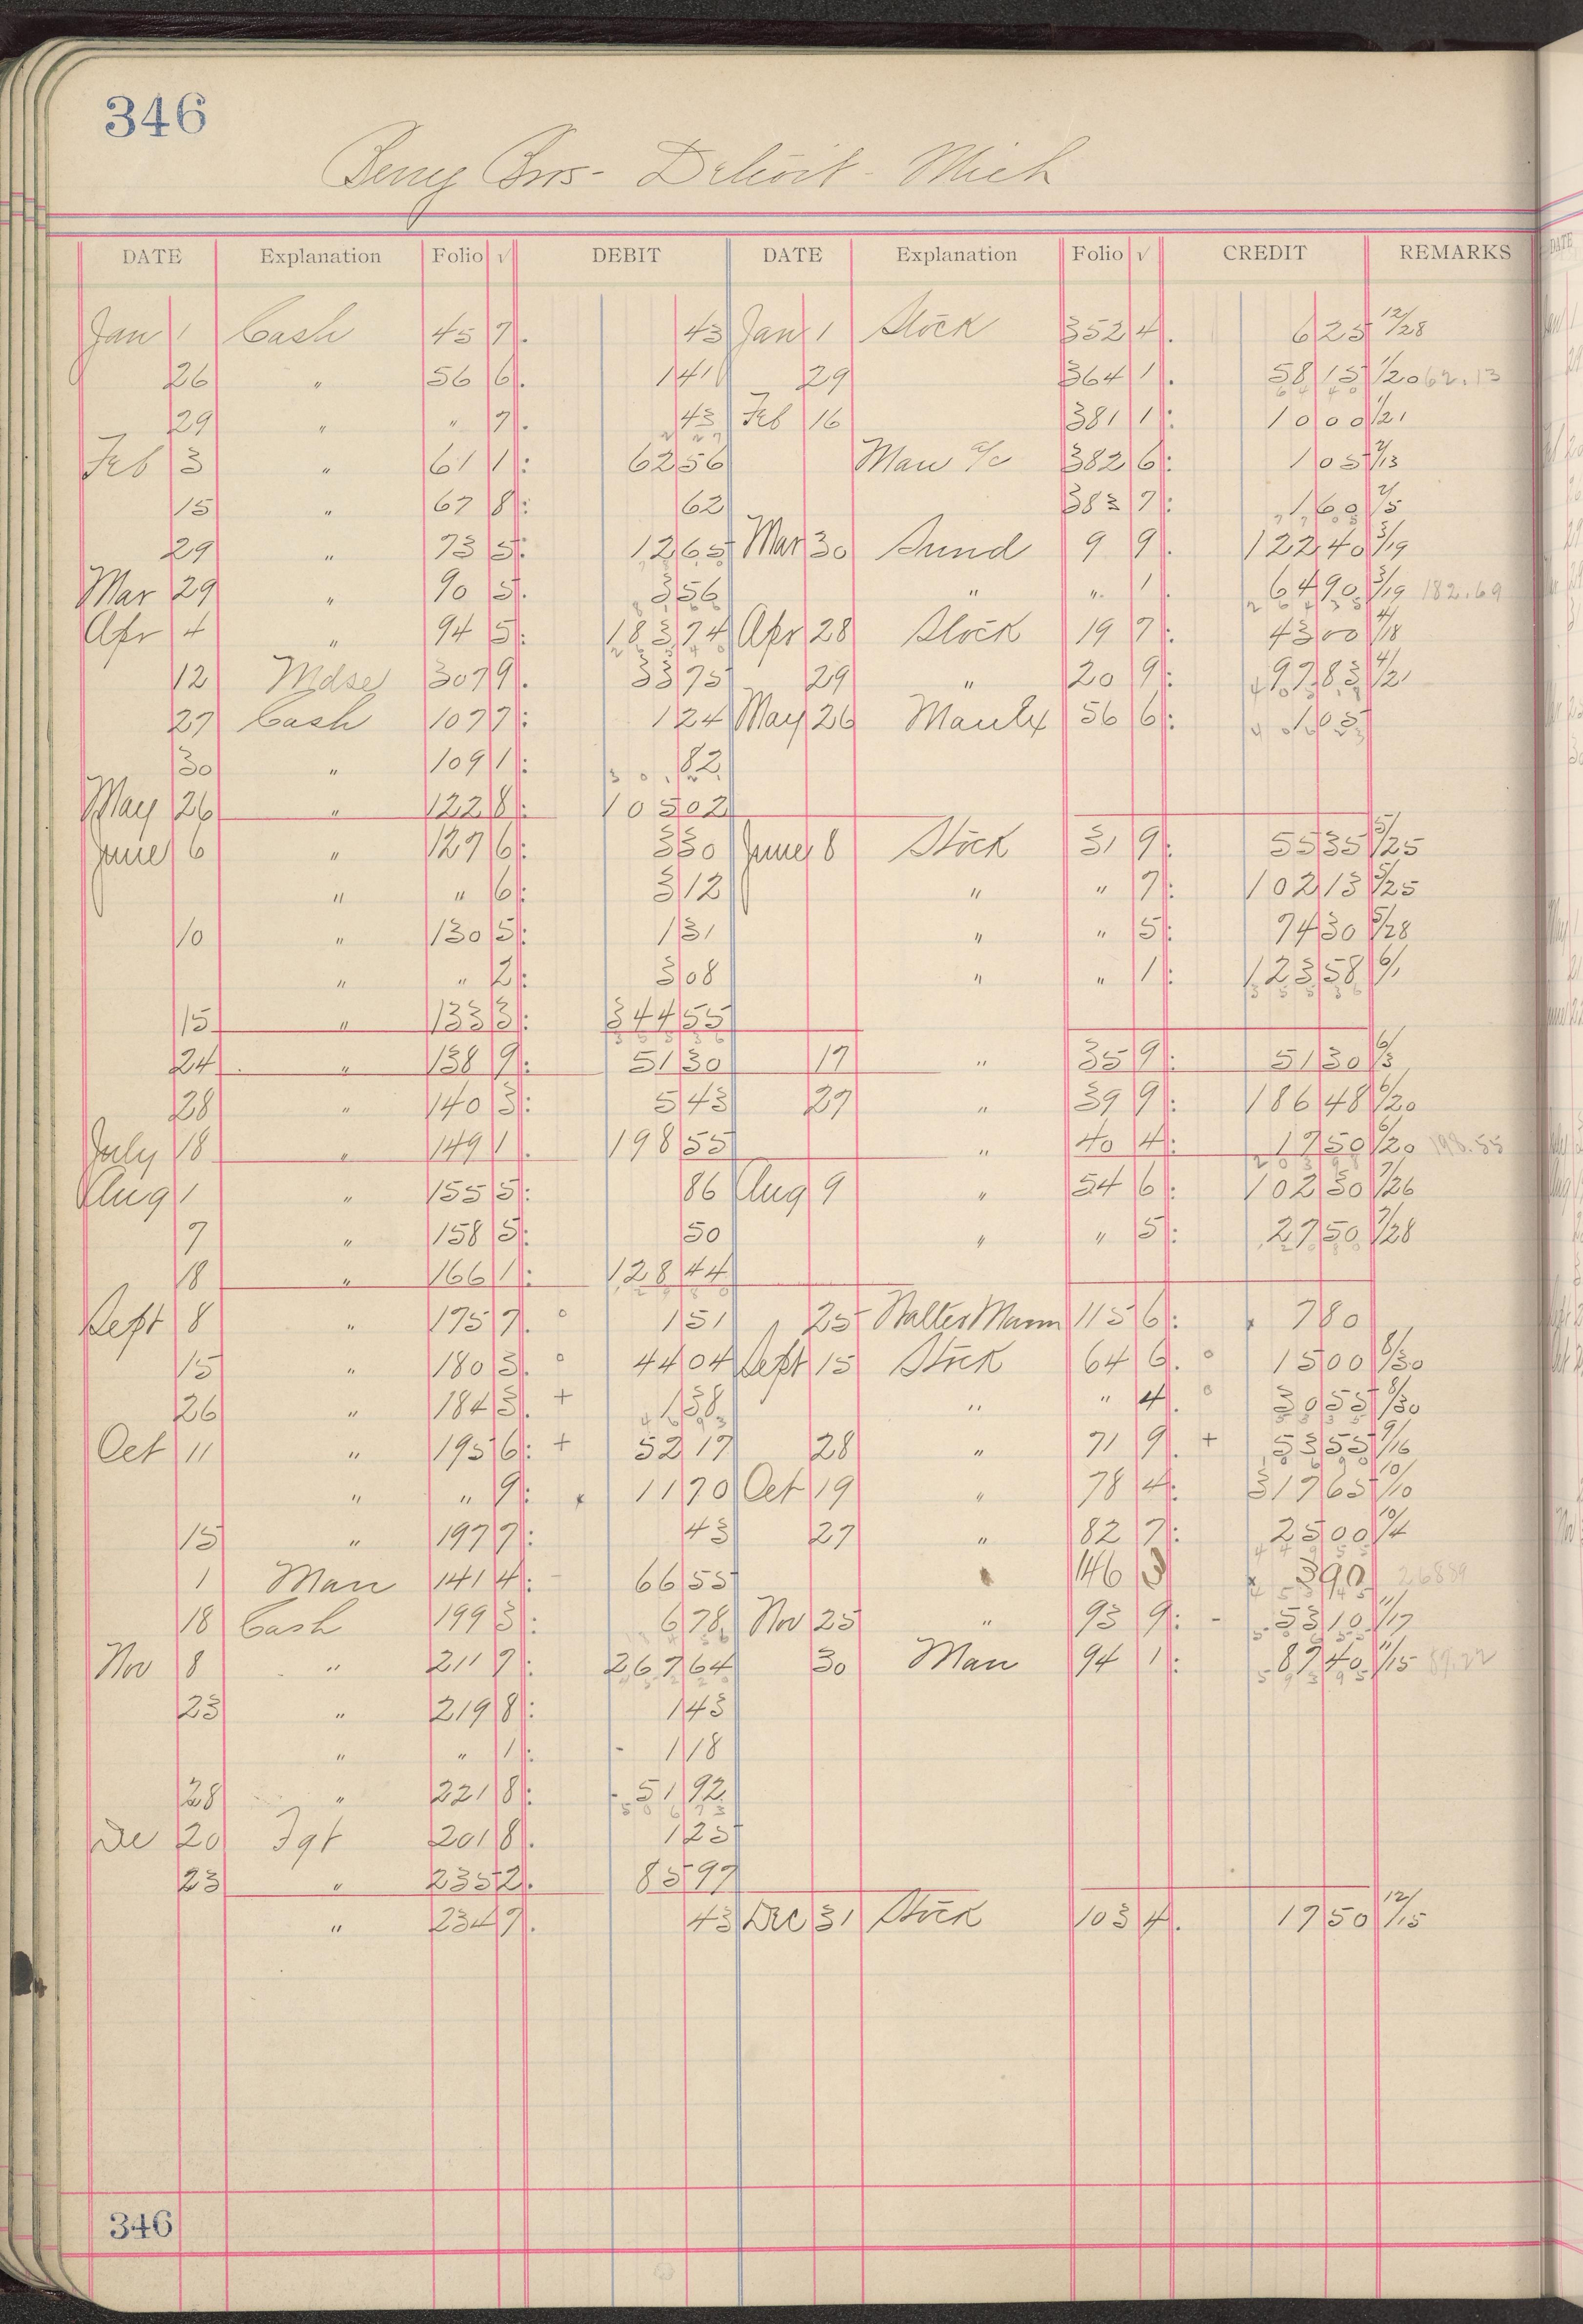 346
Berry Bros - Detroit - Mich
DATE Explanation Folio √ DEBIT DATE Explanation Folio √ CREDIT REMARKS
Jan 1 Cash 45 7. 43 Jan 1 Stock 352 4. 6 25 12/28
26 " 56 6. 1 41 29 364 1. 58 15 1/20 62.13
29 " " 7. 43 Feb 16 381 1: 10 00 1/21
Feb 3 " 61 1: 62 56 Man a/c 382 6: 1 05 2/13
15 " 67 8: 62 383 7: 1 60 2/5
29 " 73 5: 12 65 Mar 30 Sund 9 9. 122 40 3/19
Mar 29 " 90 5. 3 56 " " 1. 64 90 3/19 182.69
Apr 4 " 94 5: 183 74 Apr 28 Stock 19 7: 43 00 4/18
12 Mdse 307 9. 33 75 29 " 20 9: 97 83 4/21
27 Cash 107 7: 1 24 May 26 Manly 56 6: 1 05
30 " 109 1: 82
May 26 " 122 8: 105 02
June 6 " 127 6: 3 30 June 8 Stock 31 9: 55 35 5/25
" " 6: 3 12 " " 7: 102 13 5/25
10 " 130 5: 1 31 " " 5: 74 30 5/28
" " 2: 3 08 " " 1: 123 58 6/1
15 " 133 3: 344 55
24 " 138 9: 51 30 17 " 35 9: 51 30 6/3
28 " 140 3: 5 43 27 " 39 9: 186 48 6/20
July 18 " 149 1. 198 55 " 40 4: 17 50 6/20 198.55
Aug 1 " 155 5: 86 Aug 9 " 54 6: 102 30 7/26
7 " 158 5: 50 " " 5: 27 50 7/28
18 " 166 1: 128 44
Sept 8 " 175 7. ° 1 51 25 Walter Mann 115 6: x 7 80
15 " 180 3. ° 44 04 Sept 15 Stock 64 6. ° 15 00 8/30
26 " 184 3. + 1 38 " " 4. ° 30 55 8/30
Oct 11 " 195 6: + 52 17 28 " 71 9. + 53 55 9/16
" " 9: x 11 70 Oct 19 " 78 4: 317 65 10/10
15 " 197 7: 43 27 " 82 7: 25 00 10/4
1 Man 141 4: - 66 55 146 3 x 3 90 268 89
18 Cash 199 3: 6 78 Nov 25 " 93 9: - 53 10 11/17
Nov 8 " 211 7: 267 64 30 Man 94 1: 87 40 11/15 89.22
23 " 219 8: 1 43
" " 1: - 1 18
28 " 221 8: - 51 92
De 20 Fgt 201 8. 1 25
23 " 235 2. 85 97
" 234 7. 43 Dec 31 Stock 103 4. 17 50 12/15
346